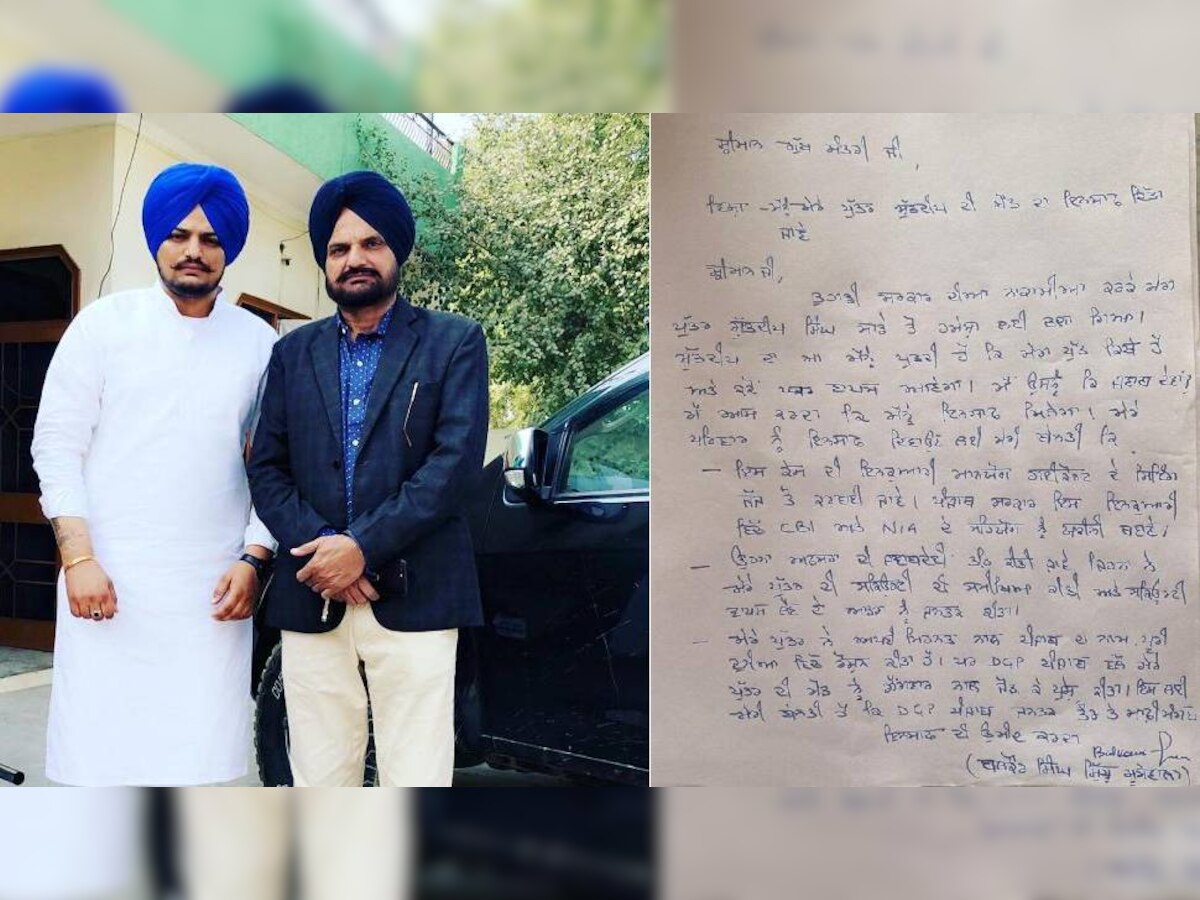 ਸ੍ਰੀਮਾਨ ਮੁੱਖ ਮੰਤਰੀ ਜੀ,
ਵਿਸ਼ਾ - ਮੇਰੇ ਪੁੱਤਰ ਸ਼ੁੱਭਦੀਪ ਦੀ ਮੌਤ ਦਾ ਇਨਸਾਫ ਦਿੱਤਾ
ਜਾਵੇ
ਸ੍ਰੀਮਾਨ ਜੀ,
ਤੁਹਾਡੀ ਸਰਕਾਰ ਦੀਆਂ ਨਾਕਾਮੀਆਂ ਕਰਕੇ ਮੇਰਾ
ਪੁੱਤਰ ਸ਼ੁੱਭਦੀਪ ਸਿੰਘ ਸਾਡੇ ਤੋਂ ਹਮੇਸ਼ਾ ਲਈ ਚਲਾ ਗਿਆ।
ਸ਼ੁੱਭਦੀਪ ਦੀ ਮਾਂ ਮੈਨੂੰ ਪੁੱਛਦੀ ਹੈ ਕਿ ਮੇਰਾ ਪੁੱਤ ਕਿਥੇ ਹੈ
ਅਤੇ ਕਦੋਂ ਵਾਪਸ ਆਵੇਗਾ। ਮੈਂ ਉਸਨੂੰ ਕਿ ਜਵਾਬ ਦੇਵਾਂ?
ਮੈਂ ਆਸ ਕਰਦਾ ਕਿ ਮੈਨੂੰ ਇਨਸਾਫ ਮਿਲੇਗਾ। ਮੇਰੇ
ਪਰਿਵਾਰ ਨੂੰ ਇਨਸਾਫ ਦਿਵਾਉਣ ਲਈ ਮੇਰੀ ਬੇਨਤੀ ਕਿ
- ਇਸ ਕੇਸ ਦੀ ਇਨਕੁਆਰੀ ਮਾਨਯੋਗ ਹਾਈਕੋਰਟ ਦੇ ਸਿਟਿੰਗ
ਜੱਜ ਤੋਂ ਕਰਵਾਈ ਜਾਵੇ। ਪੰਜਾਬ ਸਰਕਾਰ ਇਸ ਇਨਕੁਆਰੀ
ਵਿੱਚ CBI ਅਤੇ NIA ਦੇ ਸਹਿਯੋਗ ਨੂੰ ਯਕੀਨੀ ਬਣਾਵੇ।
- ਉਹਨਾਂ ਅਫਸਰਾਂ ਦੀ ਜਵਾਬਦੇਹੀ ਤੈਅ ਕੀਤੀ ਜਾਵੇ ਜਿਹਨਾਂ ਨੇ
ਮੇਰੇ ਪੁੱਤਰ ਦੀ ਸਕਿਉਰਟੀ ਦੀ ਸਮੀਖਿਆ ਕੀਤੀ ਅਤੇ ਸਕਿਉਰਟੀ
ਵਾਪਸ ਲੈਣ ਦੇ ਆਡਰ ਨੂੰ ਜਨਤਕ ਕੀਤਾ।
- ਮੇਰੇ ਪੁੱਤਰ ਨੇ ਆਪਣੀ ਮਿਹਨਤ ਨਾਲ ਪੰਜਾਬ ਦਾ ਨਾਮ ਪੂਰੀ
ਦੁਨੀਆ ਵਿੱਚ ਰੌਸ਼ਨ ਕੀਤਾ ਹੈ। ਪਰ DGP ਪੰਜਾਬ ਵੱਲੋਂ ਮੇਰੇ
ਪੁੱਤਰ ਦੀ ਮੌਤ ਨੂੰ ਗੈਂਗਵਾਰ ਨਾਲ ਜੋੜ ਕੇ ਪੇਸ਼ ਕੀਤਾ। ਇਸ ਲਈ
ਮੇਰੀ ਬੇਨਤੀ ਹੈ ਕਿ DGP ਪੰਜਾਬ ਜਨਤਕ ਤੌਰ ਤੇ ਮਾਫੀ ਮੰਗਣ
ਇਨਸਾਫ ਦੀ ਉਮੀਦ ਕਰਦਾ
(ਬਲਕੌਰ ਸਿੰਘ ਸਿੱਧੂ ਮੂਸੇਵਾਲਾ)